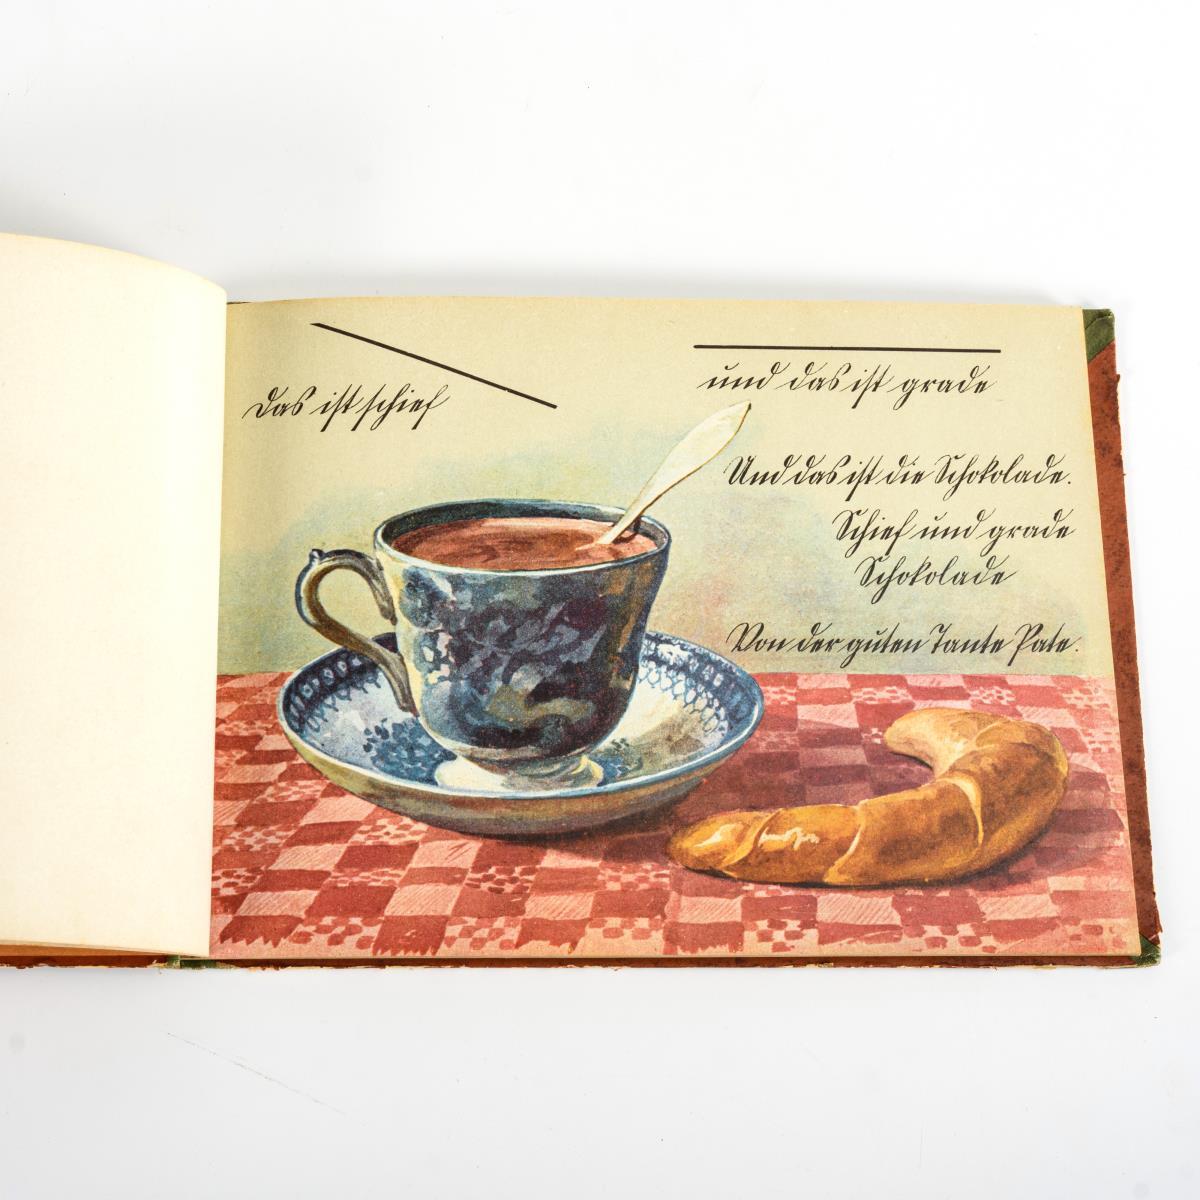 Das ist schief
und das ist grade
Und das ist die Schokolade.
Schief und grade
Schokolade
Von der guten Tante Pate.